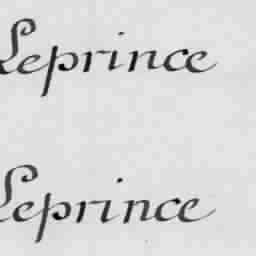 Leprince
Leprince